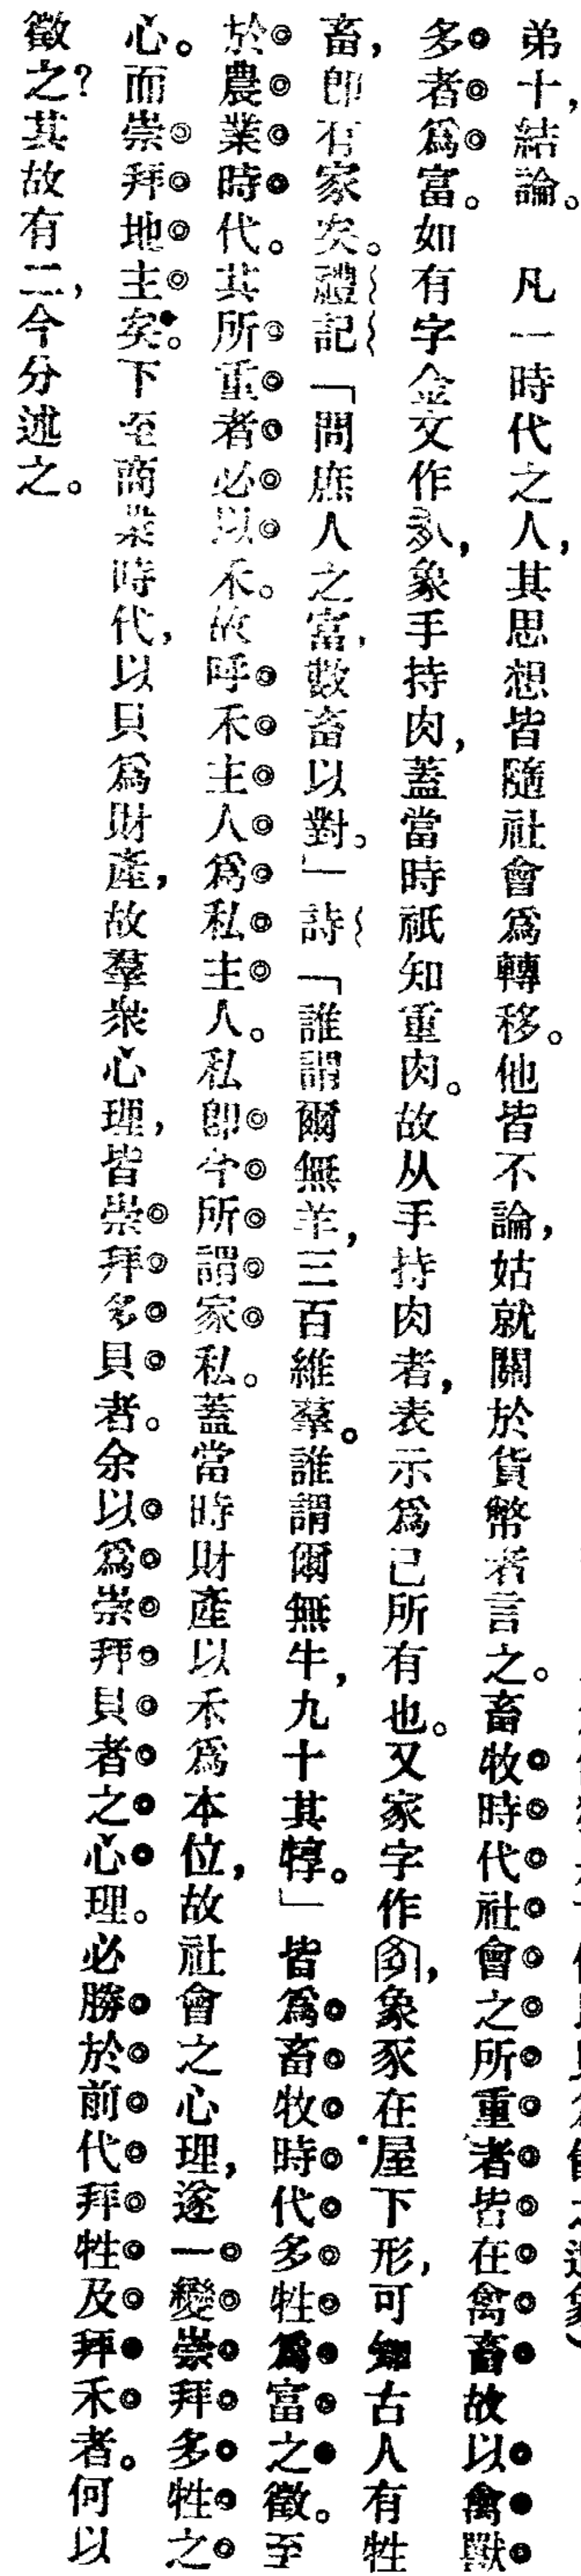 弟十，結論。　凡一時代之人，其思想皆隨社會爲轉移。他皆不論，姑就關於貨幣者言之。畜牧時代社會之所重者皆在禽畜故以禽獸
多者爲富。如有字金文作，象手持肉，蓋當時祇知重肉。故从手持肉者，表示爲己所有也。又家字作，象豕在屋下形，可知古人有牲
畜，卽有家矣。禮記「問庶人之富，數畜以對。」詩「誰謂爾無羊，三百維羣。誰謂爾無牛，九十其犉。」皆爲畜牧時代多牲爲富之徵。至
於農業時代。其所重者必以禾。故呼禾主人爲私主人。私卽今所謂家私。蓋當時財產以禾爲本位，故社會之心理，遂一變崇拜多牲之
心。而崇拜地主矣。下至商業時代，以貝爲財產，故羣衆心理，皆崇拜多貝者。余以爲崇拜貝者之心理。必勝於前代拜牲及拜禾者。何以
徵之？其故有二，今分述之。